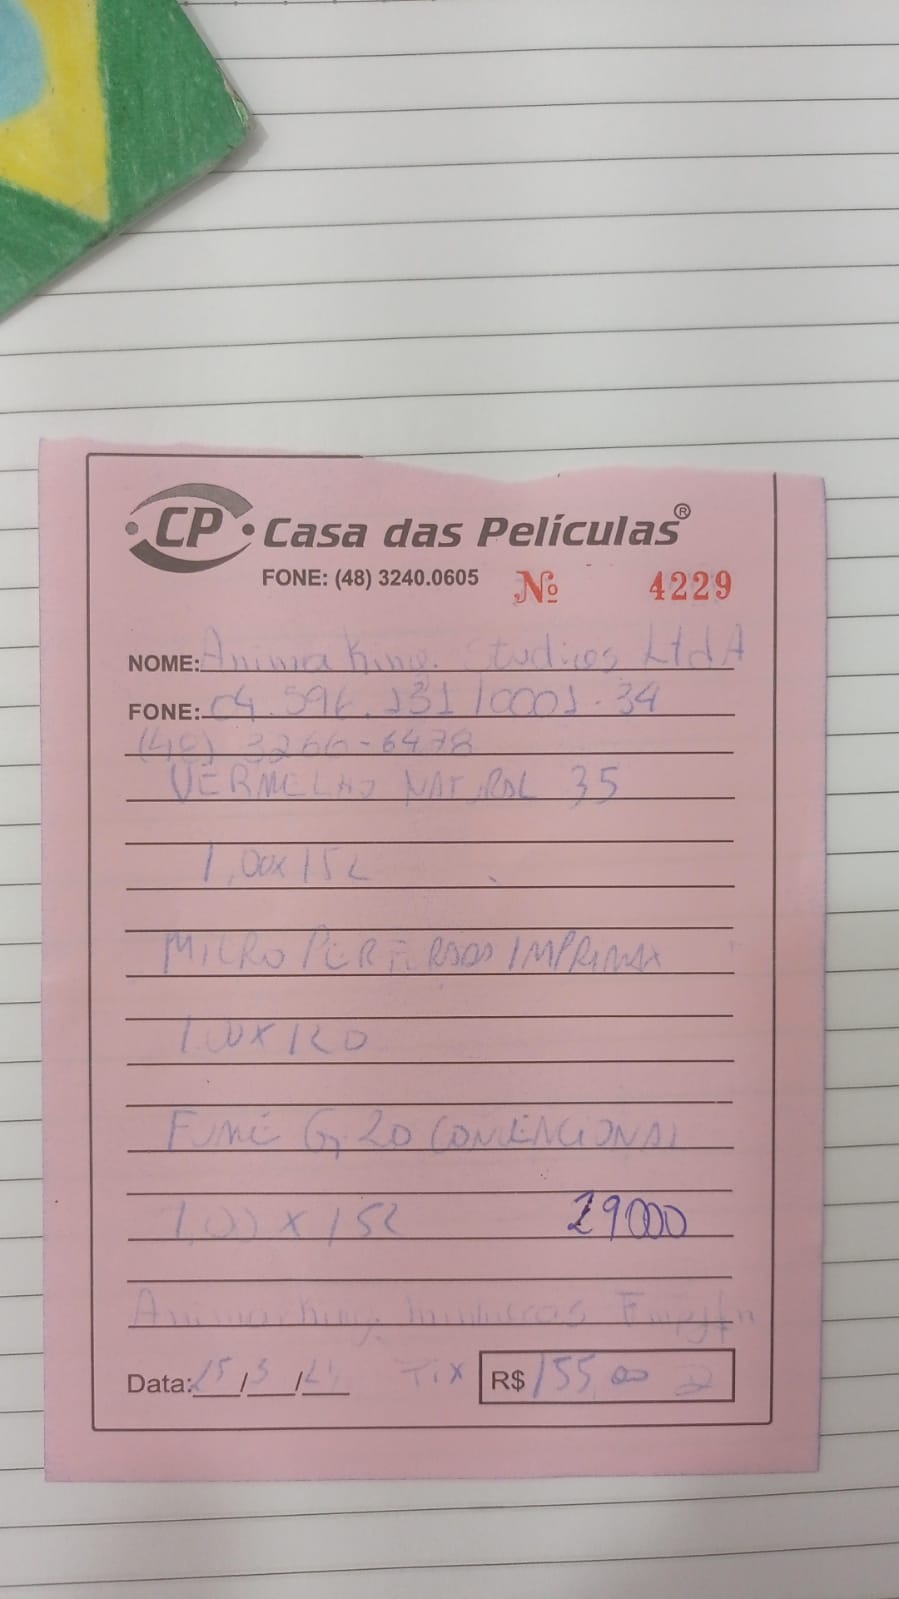 CP Casa das Películas®
FONE: (48) 3240.0605 Nº 4229
NOME: Animaking Studios LtdA
FONE: 04.596.131/0001-34
(48) 3266-6478
VERMELHO NATURAL 35
1,00x152
MICRO PERFURADO IMPRIMAX
1.00x120
FUMÊ G, 20 CONVENCIONAL
1,00 x 152 29000
Data: 15/3/ Pix R$ 155,00